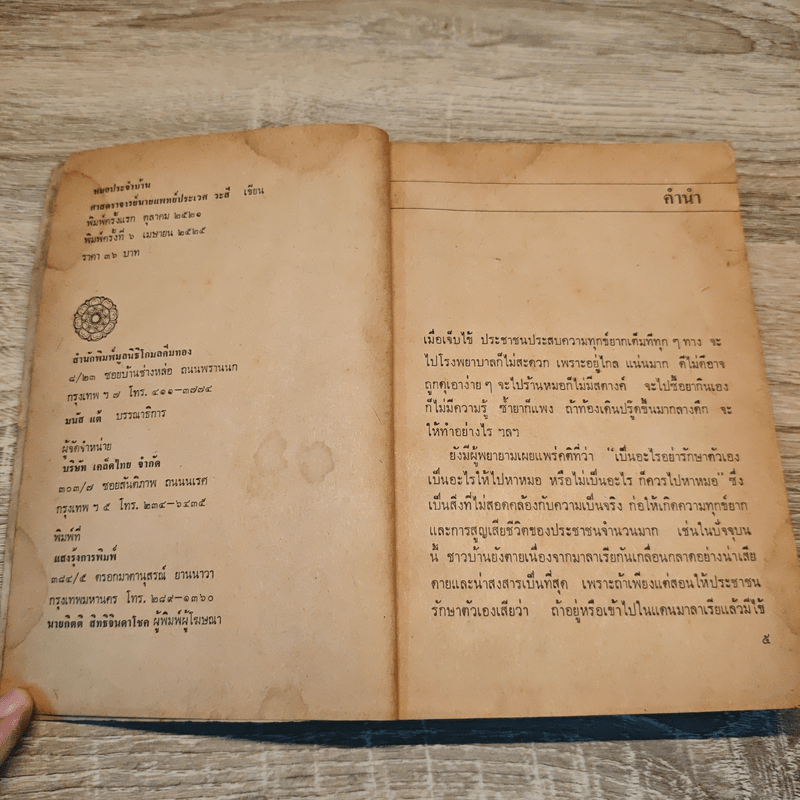 หมอประจำบ้าน
ศาสตราจารย์นายแพทย์ประเวศ วะสี เขียน
พิมพ์ครั้งแรก ตุลาคม ๒๕๒๑
พิมพ์ครั้งที่ ๖ เมษายน ๒๕๒๕
ราคา ๓๖ บาท
สำนักพิมพ์มูลนิธิโกมลคีมทอง
๘/๒๓ ซอยบ้านช่างหล่อ ถนนพรานนก
กรุงเทพ ฯ ๗ โทร. ๔๑๑-๓๗๗๔
มนัส แต้ บรรณาธิการ
ผู้จัดจำหน่าย
บริษัท เคล็ดไทย จำกัด
๓๐๓/๗ ซอยสันติภาพ ถนนนเรศ
กรุงเทพ ฯ ๕ โทร. ๒๓๔-๖๔๓๕
พิมพ์ที่
แสงรุ้งการพิมพ์
๓๘๔/๕ ตรอกมาตานุสรณ์ ยานนาวา
กรุงเทพมหานคร โทร. ๒๘๙-๑๓๖๐
นายกิตติ สิทธิจินดาโชค ผู้พิมพ์ผู้โฆษณา
คำนำ
เมื่อเจ็บไข้ ประชาชนประสบความทุกข์ยากเต็มทีทุก ๆ ทาง จะ
ไปโรงพยาบาลก็ไม่สะดวก เพราะอยู่ไกล แน่นมาก ดีไม่ดีอาจ
ถูกดุเอาง่าย ๆ จะไปร้านหมอก็ไม่มีสตางค์ จะไปซื้อยากินเอง
ก็ไม่มีความรู้ ซ้ำยาก็แพง ถ้าท้องเดินปรู๊ดขึ้นมากลางดึก จะ
ให้ทำอย่างไร ฯลฯ
ยังมีผู้พยายามเผยแพร่คติที่ว่า “เป็นอะไรอย่ารักษาตัวเอง
เป็นอะไรให้ไปหาหมอ หรือไม่เป็นอะไร ก็ควรไปหาหมอ” ซึ่ง
เป็นสิ่งที่ไม่สอดคล้องกับความเป็นจริง ก่อให้เกิดความทุกข์ยาก
และการสูญเสียชีวิตของประชาชนจำนวนมาก เช่นในปัจจุบน
นี้ ชาวบ้านยังตายเนื่องจากมาลาเรียกันเกลื่อนกลาดอย่างน่าเสีย
ดายและน่าสงสารเป็นที่สุด เพราะถ้าเพียงแต่สอนให้ประชาชน
รักษาตัวเองเสียว่า ถ้าอยู่หรือเข้าไปในแดนมาลาเรียแล้วมีไข้
๕